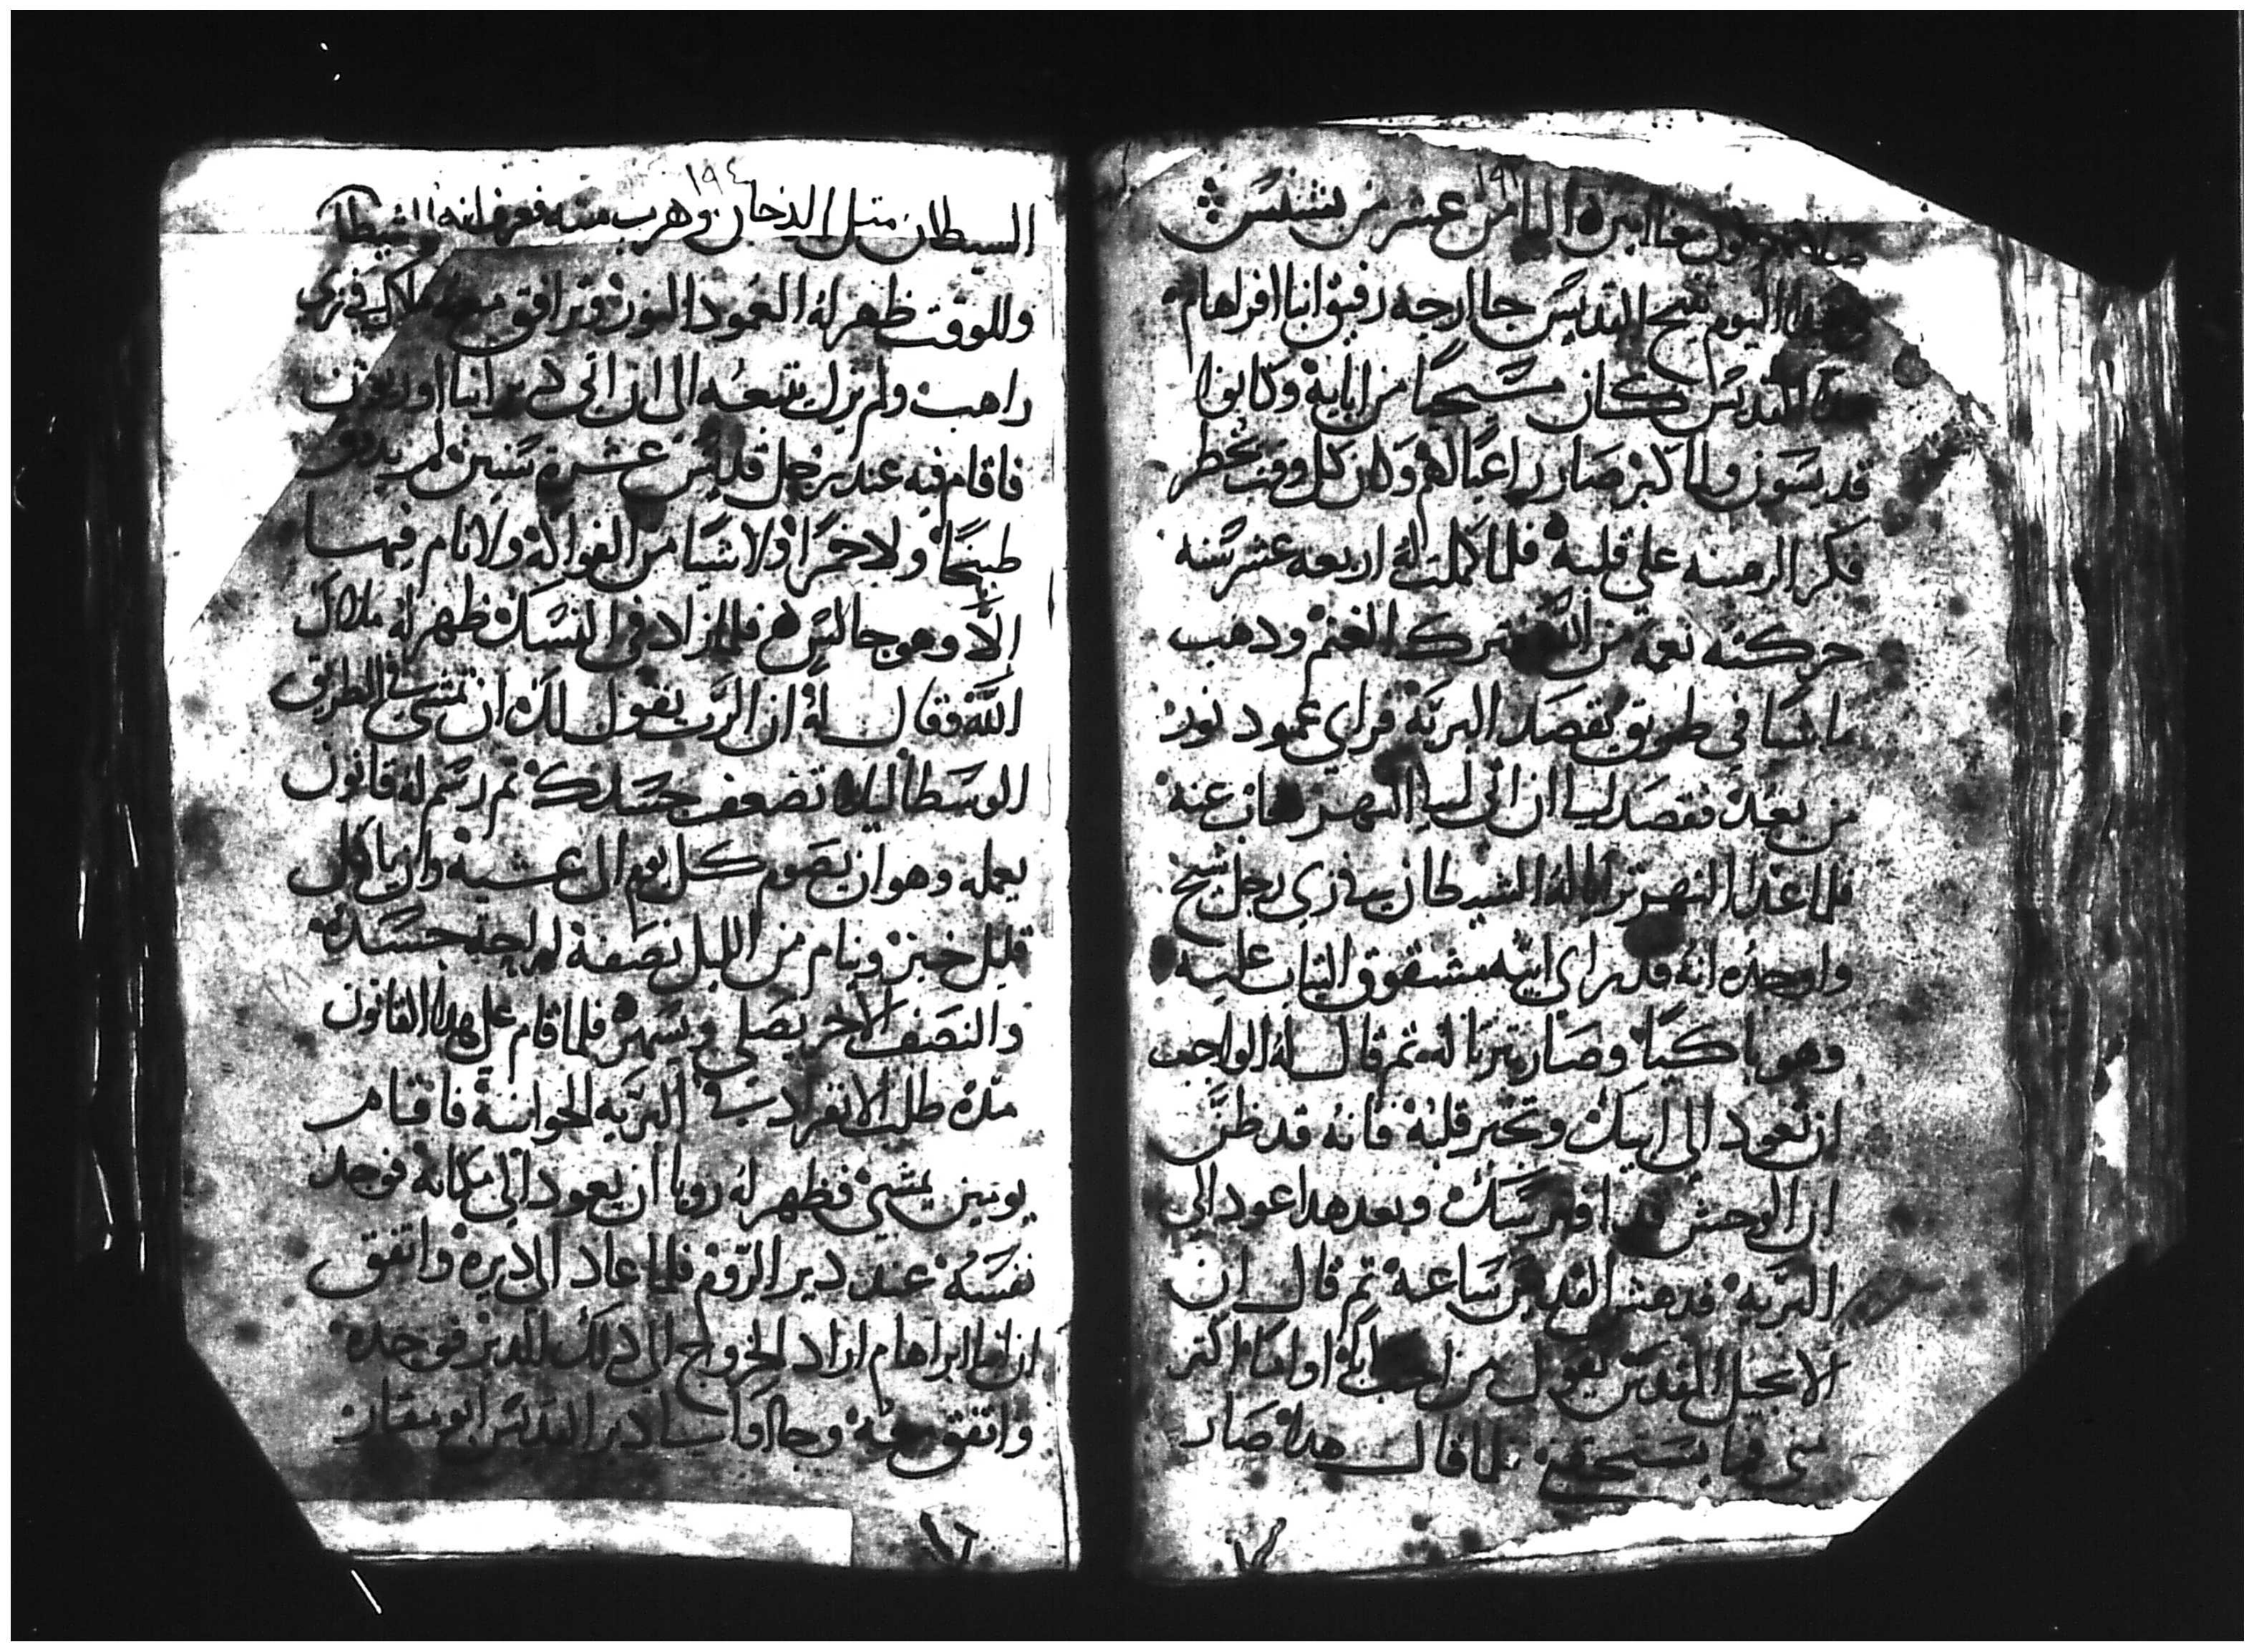 ١٩٣
صلاته تكون معنا امين اليوم الثامن عشر من بشنس
في هدا اليوم تنيح القديس جاارجه رفيق انبا افراهام
هدا القديس كان مسيحيًا من ابايه وكانوا
قديسون ولما كبر صار راعيًا لهم وكان كل وقت يخطر
فكر الرهبنه على قلبه فلما كملت له اربعه عشر سنه
حركته نعمة من الله فترك الغنم ودهب
ماشيا في طريق يقصد البريّه فراى عمود نور
من بعيد فقصد ليه الى ان اتى ليه النهر فغاب عنه
فلما عدا النهر تراياله الشيطان في زي رجل شيخ
واوجده انه قد راى ابيه مشقوق الثياب عليه
وهو باكيًا وصار يترتا له ثم قال له الواجب
ان تعود الى ابيك وتجبر قلبه فانه قد ظنَّ
ان الوحش قد افترسك وبعد هدا عود الى
البريه فدهش القديس ساعة ثم قال ان
الانجيل المقدس يقول من احب ابًا او امًا اكثر
مني فما يستحقني فلما قال هدا صار
١٩٤
الشيطان متل الدخان وهرب منه فعرف انه الشيطان
وللوقت ظهر له العمود النور وترافق معه ملاك في زي
راهب ولم يزل يتبعه الى ان اتى دير انبا اوريون
فاقام فيه عند رجل قديس عشرة سنين لم يدوق
طبيخًا ولا خمرًا ولا شيًا من الفواكه ولا نام فيهما
إلّا وهو جالسًا فلما زاد في النسك ظهر له ملاك
اللّه وقال له ان الرّب يقول لك ان تمشي في الطريق
الوسطا ليلا تضعف جسدك ثم رسم له قانون
يعمله وهو ان يصوم كل يوم الى عشية وان ياكل
قليل خبز وينام من الليل نصفه لراحة جسده
والنصف الاخر يصلي ويسهر فلما قام على هدا القانون
مدة طلب الانفراد في البريّه الجوانية فاقام
يومين يمشي فظهر له رويا ان يعود الى مكانه فوجد
نفسه عند دير الروم فلما عاد الى ديره واتفق
ان انبا ابراهام اراد الخروج الى دلك الدير فوجده
واتفق معه وجاوا الى دير القديس ابو مقار